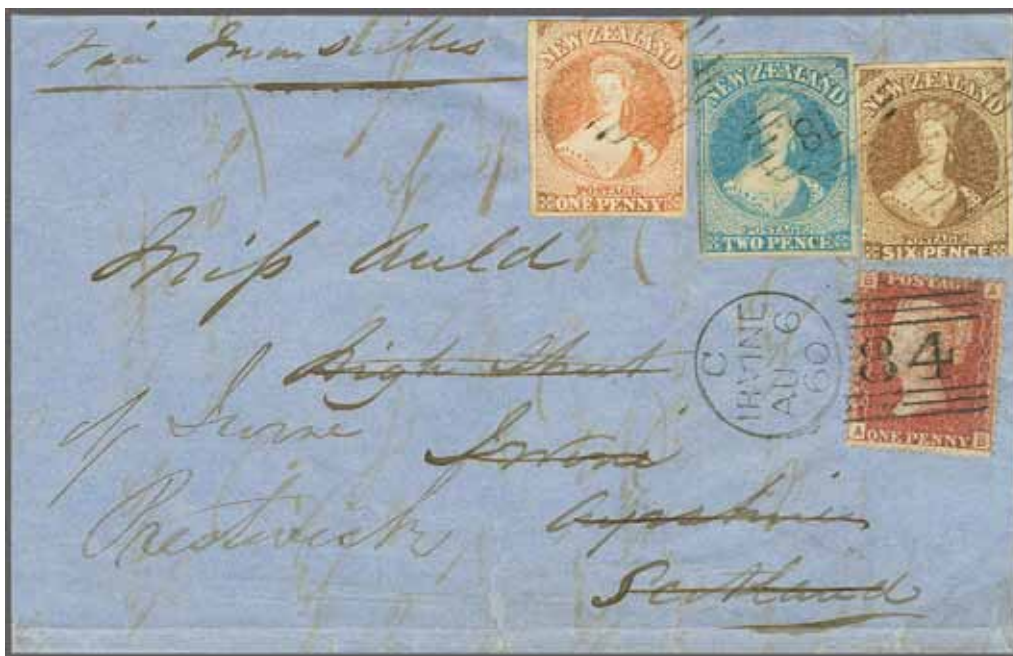 Via Marseilles
NEW ZEALAND
POSTAGE
ONE PENNY
NEW ZEALAND
8
POSTAGE
TWO PENCE
NEW ZEALAND
POSTAGE
SIX PENCE
Miss Auld
High Street
Irvine
Ayrshire
Scotland
Prestwick
C
IRVINE
AU 6
60
B POSTAGE A
84
A ONE PENNY B